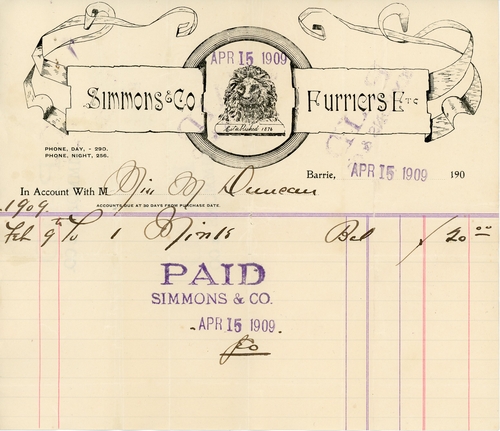 APR 15 1909
Simmons & Co Furriers Etc
Established 1876
PHONE, DAY, - 290.
PHONE, NIGHT, 256.
Barrie, APR 15 1909 190
In Account With M Miss M Duncan
1909 ACCOUNTS DUE AT 30 DAYS FROM PURCHASE DATE.
Feb 9th To 1 Mink Bal 20 00
PAID
SIMMONS & CO.
APR 15 1909